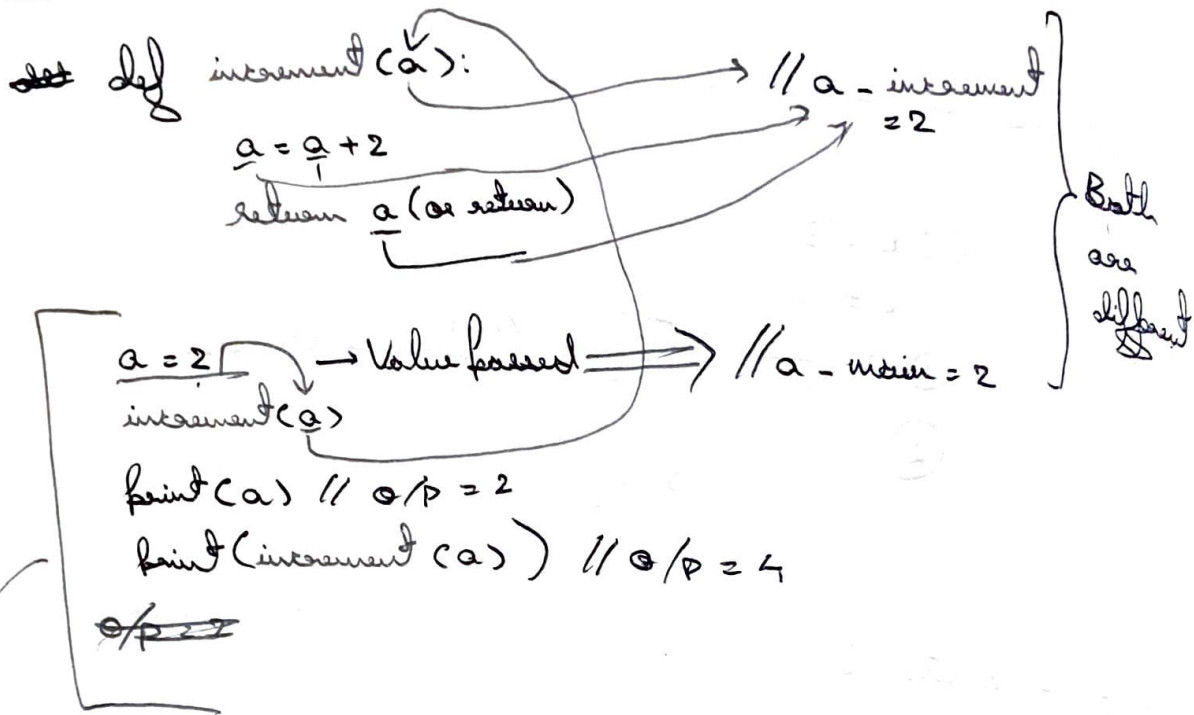 def increment(a):
// a - increment
= 2
a = a + 2
return a (or return)
Both
are
different
a = 2 → Value passed ⇒ // a - main = 2
increment(a)
print(a) // o/p = 2
print(increment(a)) // o/p = 4